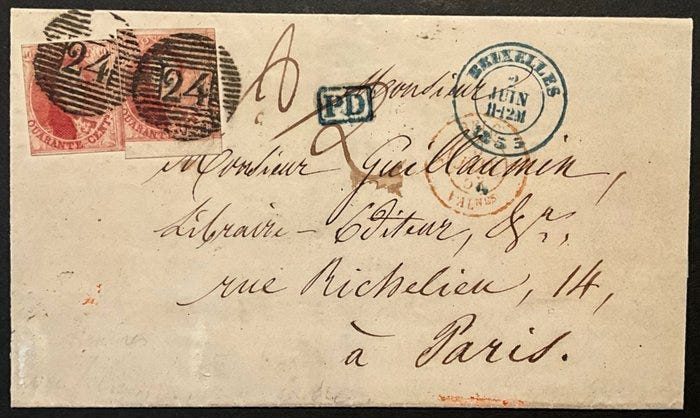 24
24
QUARANTE CENTS
QUARANTE
PD
BRUXELLES
2
JUIN
11-12M
1853
VALNES
Monsieur
Monsieur Guillaumin,
Libraire-Editeur, &r.,
rue Richelieu, 14,
à Paris.